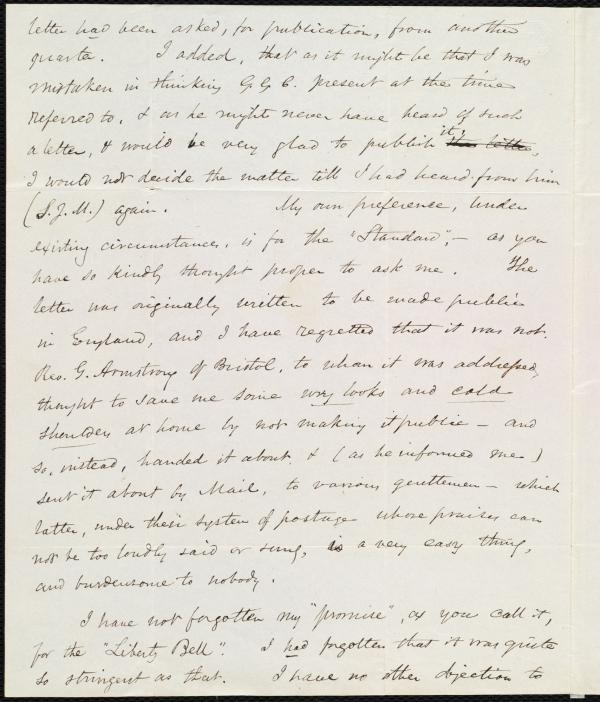 letter had been asked, for publication, from another
quarter. I added, that as it might be that I was
mistaken in thinking G G C. present at the time
referred to, & as he might never have heard of such
a letter, & would be very glad to publish it,
I would not decide the matter till I had heard from him
(S.J.M.) again. My own preference, under
existing circumstances, is for the "Standard", — as you
have so kindly thought proper to ask me. The
letter was originally written to be made public
in England, and I have regretted that it was not.
Rev. G. Armstrong of Bristol, to whom it was addressed,
thought to save me some wry looks and cold
shoulders at home by not making it public — and
so, instead, handed it about, & (as he informed me)
sent it about by Mail, to various gentlemen — which
latter, under their system of postage whose praises can
not be too loudly said or sung, is a very easy thing,
and burdensome to nobody.
I have not forgotten my "promise", as you call it,
for the "Liberty Bell". I had forgotten that it was quite
so stringent as that. I have no other objection to